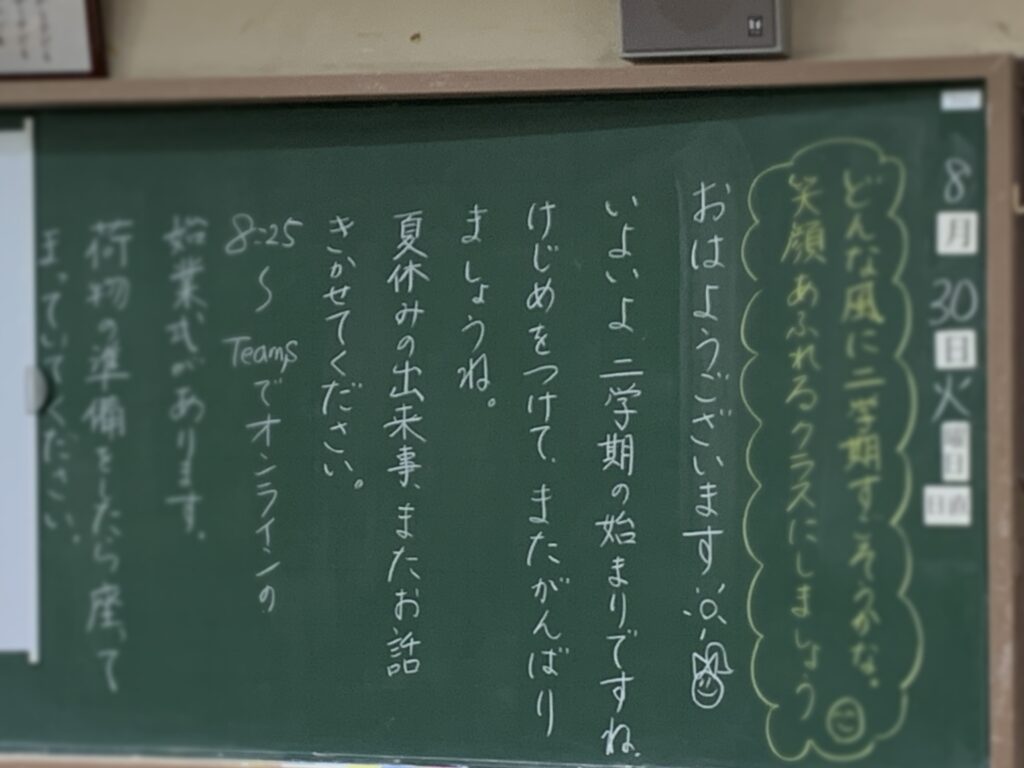 8月30日火曜日
日直
どんな風に二学期すごそうかな。
笑顔あふれるクラスにしましょう
おはようございます
いよいよ二学期の始まりですね。
けじめをつけて、またがんばり
ましょうね。
夏休みの出来事、またお話
きかせてください。
8:25〜Teamsでオンラインの
始業式があります。
荷物の準備をしたら座って
まっていてください。